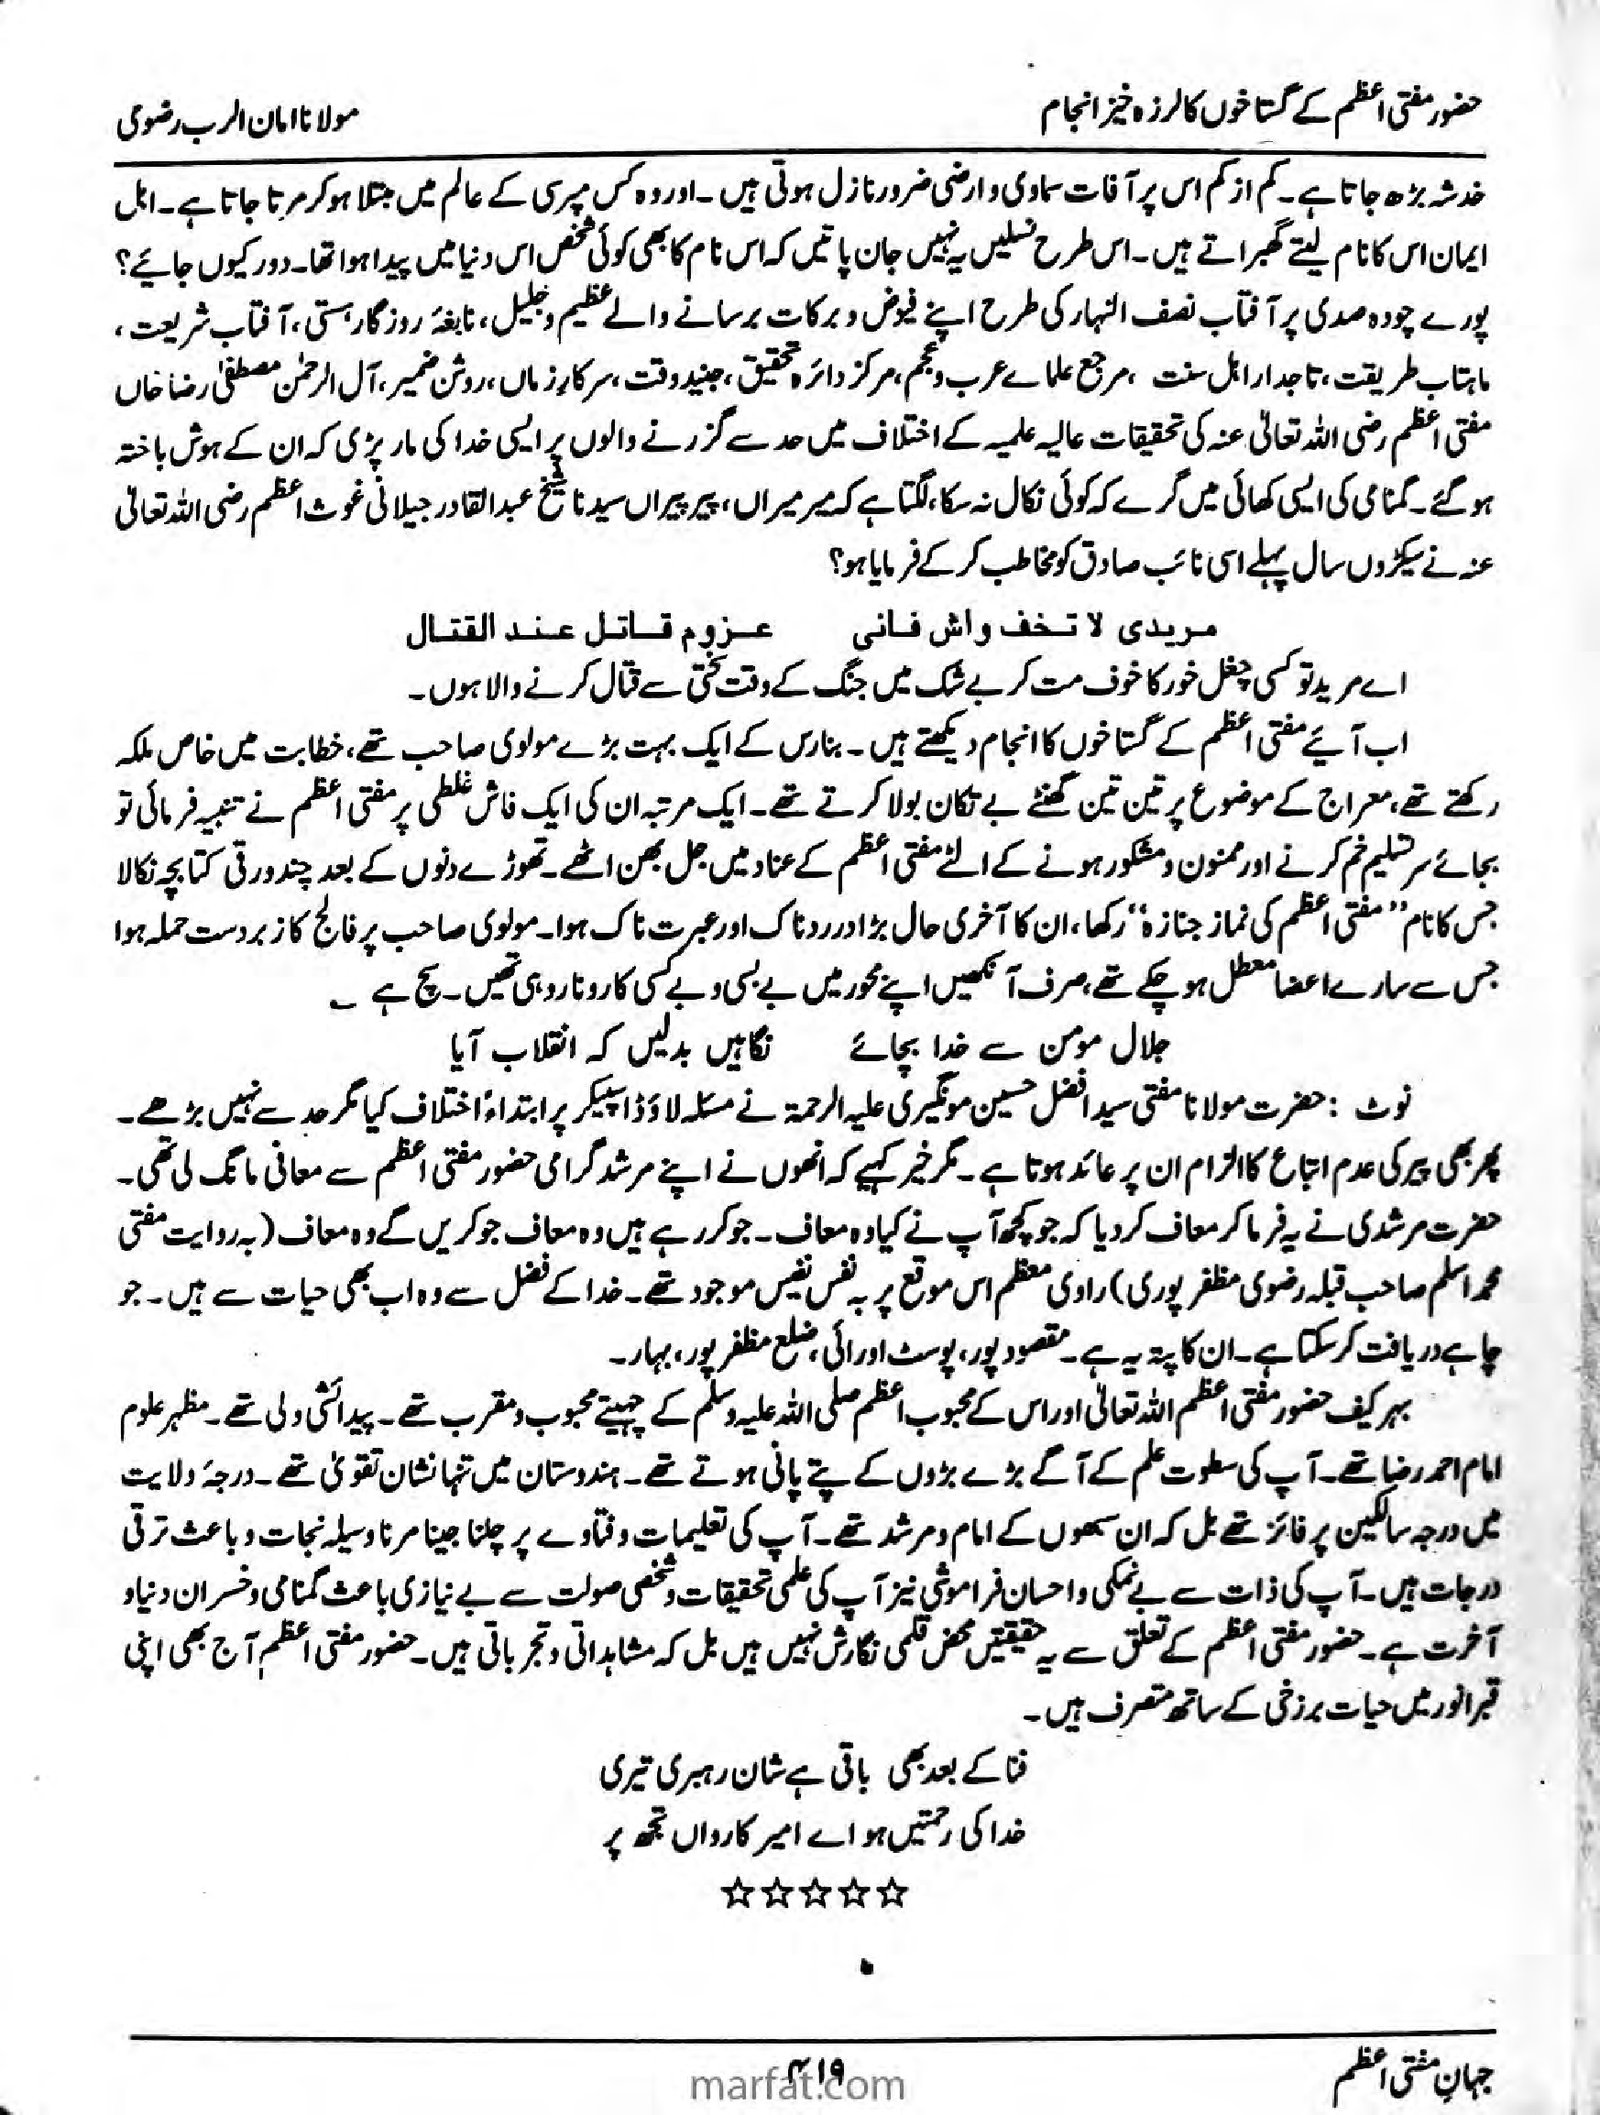 حضور مفتی اعظم کے گستاخوں کا لرزہ خیز انجام
مولانا امان الرب رضوی
خدشہ بڑھ جاتا ہے۔ کم از کم اس پر آفات سماوی و ارضی ضرور نازل ہوتی ہیں۔ اور وہ کس مپرسی کے عالم میں مبتلا ہو کر مرتا جاتا ہے۔ اہل
ایمان اس کا نام لیتے گھبراتے ہیں۔ اس طرح نسلیں یہ نہیں جان پاتیں کہ اس نام کا بھی کوئی شخص اس دنیا میں پیدا ہوا تھا۔ دور کیوں جایئے؟
پورے چودہ صدی پر آفتاب نصف النہار کی طرح اپنے فیوض و برکات برسانے والے عظیم و جلیل، نابغۂ روزگار ہستی، آفتاب شریعت،
ماہتاب طریقت، تاجدار اہل سنت، مرجع علماے عرب و عجم، مرکز دائرہ تحقیق، جنید وقت، سرکار زماں، روشن ضمیر، آل الرحمٰن مصطفیٰ رضا خاں
مفتی اعظم رضی اللہ تعالیٰ عنہ کی تحقیقات عالیہ علمیہ کے اختلاف میں حد سے گزرنے والوں پر ایسی خدا کی مار پڑی کہ ان کے ہوش باختہ
ہو گئے۔ گمنامی کی ایسی کھائی میں گرے کہ کوئی نکال نہ سکا، لگتا ہے کہ میر میراں، پیر پیراں سیدنا شیخ عبدالقادر جیلانی غوث اعظم رضی اللہ تعالیٰ
عنہ نے سیکڑوں سال پہلے اسی نائب صادق کو مخاطب کر کے فرمایا ہو؟
مریدی لا تخف واش فانی عزوم قاتل عند القتال
اے مرید تو کسی چغل خور کا خوف مت کر بے شک میں جنگ کے وقت سختی سے قتال کرنے والا ہوں۔
اب آیئے مفتی اعظم کے گستاخوں کا انجام دیکھتے ہیں۔ بنارس کے ایک بہت بڑے مولوی صاحب تھے، خطابت میں خاص ملکہ
رکھتے تھے، معراج کے موضوع پر تین تین گھنٹے بے تکان بولا کرتے تھے۔ ایک مرتبہ ان کی ایک فاش غلطی پر مفتی اعظم نے تنبیہ فرمائی تو
بجائے سر تسلیم خم کرنے اور ممنون و مشکور ہونے کے الٹے مفتی اعظم کے عناد میں جل بھن اٹھے۔ تھوڑے دنوں کے بعد چند ورقی کتابچہ نکالا
جس کا نام "مفتی اعظم کی نماز جنازہ" رکھا، ان کا آخری حال بڑا دردناک اور عبرت ناک ہوا۔ مولوی صاحب پر فالج کا زبردست حملہ ہوا
جس سے سارے اعضا معطل ہو چکے تھے، صرف آنکھیں اپنے محور میں بے بسی و بے کسی کا رونا رو رہی تھیں۔ سچ ہے ؎
جلال مومن سے خدا بچائے نگاہیں بدلیں کہ انقلاب آیا
نوٹ : حضرت مولانا مفتی سید افضل حسین مونگیری علیہ الرحمۃ نے مسئلہ لاؤڈ اسپیکر پر ابتداءً اختلاف کیا مگر حد سے نہیں بڑھے۔
پھر بھی پیر کی عدم اتباع کا الزام ان پر عائد ہوتا ہے۔ مگر خیر کہیے کہ انھوں نے اپنے مرشد گرامی حضور مفتی اعظم سے معافی مانگ لی تھی۔
حضرت مرشدی نے یہ فرما کر معاف کر دیا کہ جو کچھ آپ نے کیا وہ معاف۔ جو کر رہے ہیں وہ معاف جو کریں گے وہ معاف (بہ روایت مفتی
محمد اسلم صاحب قبلہ رضوی مظفر پوری) راوی معظم اس موقع پر بہ نفس نفیس موجود تھے۔ خدا کے فضل سے وہ اب بھی حیات سے ہیں۔ جو
چاہے دریافت کر سکتا ہے۔ ان کا پتہ یہ ہے۔ مقصود پور، پوسٹ اورائی، ضلع مظفر پور، بہار۔
بہر کیف حضور مفتی اعظم اللہ تعالیٰ اور اس کے محبوب اعظم صلی اللہ علیہ وسلم کے چہیتے محبوب و مقرب تھے۔ پیدائشی ولی تھے۔ مظہر علوم
امام احمد رضا تھے۔ آپ کی سطوت علم کے آگے بڑے بڑوں کے پتے پانی ہوتے تھے۔ ہندوستان میں تنہا نشان تقویٰ تھے۔ درجۂ ولایت
میں درجہ سالکین پر فائز تھے بل کہ ان سبھوں کے امام و مرشد تھے۔ آپ کی تعلیمات و فتاوے پر چلنا جینا مرنا وسیلہ نجات و باعث ترقی
درجات ہیں۔ آپ کی ذات سے بے نمکی و احسان فراموشی نیز آپ کی علمی تحقیقات و شخصی صولت سے بے نیازی باعث گمنامی و خسران دنیا و
آخرت ہے۔ حضور مفتی اعظم کے تعلق سے یہ حقیقتیں محض قلمی نگارش نہیں ہیں بل کہ مشاہداتی و تجرباتی ہیں۔ حضور مفتی اعظم آج بھی اپنی
قبر انور میں حیات برزخی کے ساتھ متصرف ہیں۔
فنا کے بعد بھی باقی ہے شان رہبری تیری
خدا کی رحمتیں ہو اے امیر کارواں تجھ پر
☆☆☆☆☆
جہان مفتی اعظم
۴۱۹
marfat.com